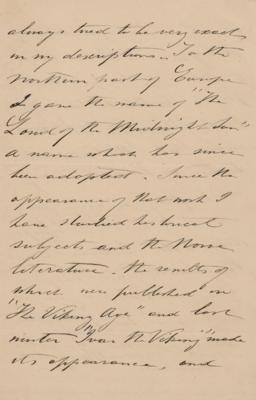 always tried to be very exact
in my descriptions. To the
northern part of Europe
I gave the name of "The
Land of the Midnight Sun"
a name which has since
been adopted. Since the
appearance of that work I
have studied historical
subjects and the Norse
literature. the results of
which were published in
"The Viking Age" and last
winter "Ivar the Viking" made
its appearance, and